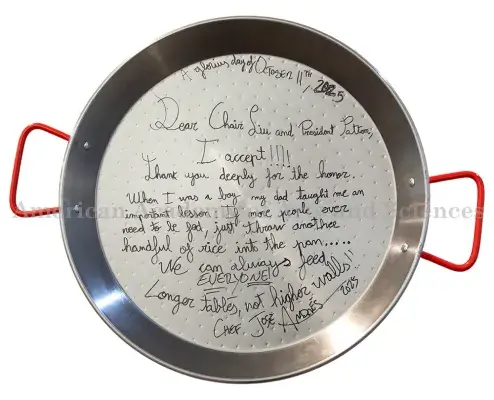 A glorius day of October 11TH, 2025
Dear Chair Liu and President Patton,
I accept!!!!
Thank you deeply for the honor.
When I was a boy my dad taught me an
important lesson more people ever
need to be fed, just throw another
handful of rice into the pan.....
We can always feed
EVERYONE!
Longer tables, not higher walls!!
Chef José Andrés 2025
American and Sciences